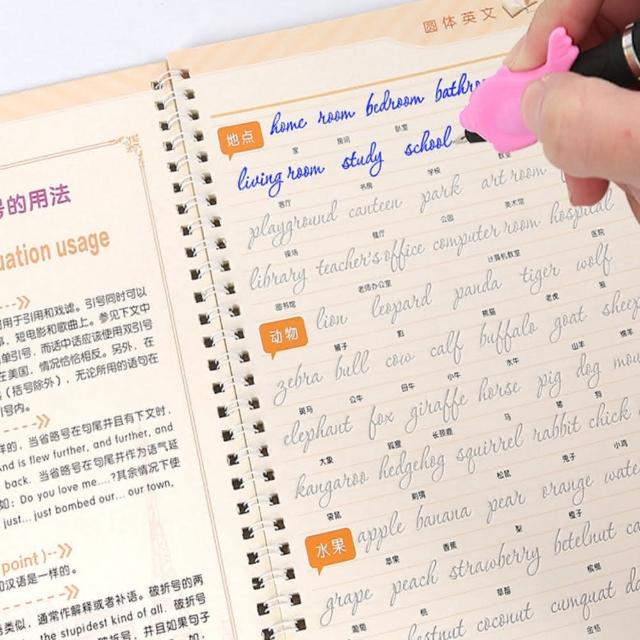 号的用法
uation usage
用于引用和戏谑。引号同时可以
章，短电影和歌曲上。参见下文中
单引号，而话中话应该使用双引号
在美国，情况恰恰相反。另外，在
(括号除外)，无论所用的语句在
引号内。
样的，当省略号在句尾并且有下文时，
And is flew further, and further, and
back. 当省略号在句尾并作为语气延
如: Do you love me....?其余情况下使
just... just bombed our... our town,
point)
和汉语是一样的。
类似，通常作解释或者补语。破折号的两
the stupidest kind of all. 破折号
圆体英文
地点 home room bedroom bathro
家 房间 卧室
living room study school
客厅 书房 学校 教室
playground canteen park art room
操场 餐厅 公园 美术馆
library teacher's office computer room hospital
图书馆 老师办公室 计算机教室 医院
动物 lion leopard panda tiger wolf
狮子 豹 熊猫 老虎 狼
zebra bull cow calf buffalo goat sheep
斑马 公牛 母牛 小牛 水牛 山羊 绵羊
elephant fox giraffe horse pig dog mou
大象 狐狸 长颈鹿 马 猪 狗
kangaroo hedgehog squirrel rabbit chick
袋鼠 刺猬 松鼠 兔子 小鸡
水果 apple banana pear orange wate
苹果 香蕉 梨 橙子
grape peach strawberry betelnut ca
葡萄 桃 草莓 槟榔
chestnut coconut cumquat d
金桔